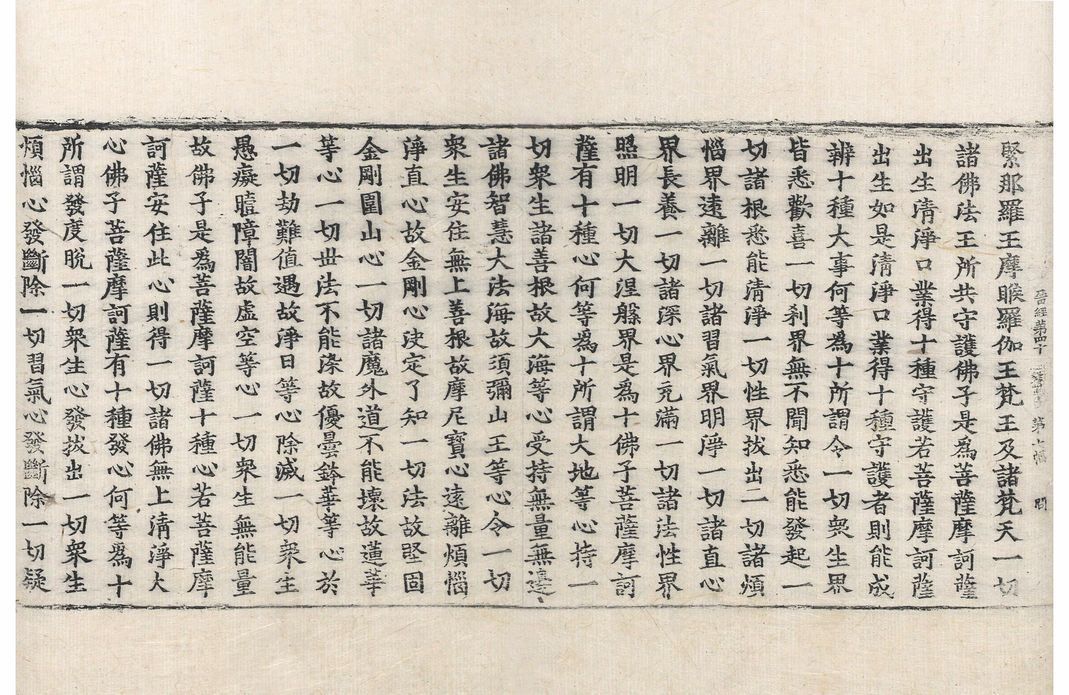 晉經第四十 第七幅 問
緊那羅王摩睺羅伽王梵王及諸梵天一切
諸佛法王所共守護佛子是為菩薩摩訶薩
出生淸淨口業得十種守護若菩薩摩訶薩
出生如是淸淨口業得十種守護者則能成
辨十種大事何等為十所謂令一切衆生界
皆悉歡喜一切剎界無不聞知悉能發起一
切諸根悉能淸淨一切性界拔出一切諸煩
惱界遠離一切諸習氣界明淨一切諸直心
界長養一切諸深心界充滿一切諸法性界
照明一切大涅槃界是為十佛子菩薩摩訶
薩有十種心何等為十所謂大地等心持一
切衆生諸善根故大海等心受持無量無邊
諸佛智慧大法海故須彌山王等心令一切
衆生安住無上善根故摩尼寶心遠離煩惱
淨直心故金剛心決定了知一切法故堅固
金剛圍山心一切諸魔外道不能壞故蓮華
等心一切世法不能染故優曇鉢華等心於
一切劫難值遇故淨日等心除滅一切衆生
愚癡曀障闇故虛空等心一切衆生無能量
故佛子是為菩薩摩訶薩十種心若菩薩摩
訶薩安住此心則得一切諸佛無上淸淨大
心佛子菩薩摩訶薩有十種發心何等為十
所謂發度脫一切衆生心發拔出一切衆生
煩惱心發斷除一切習氣心發斷除一切疑